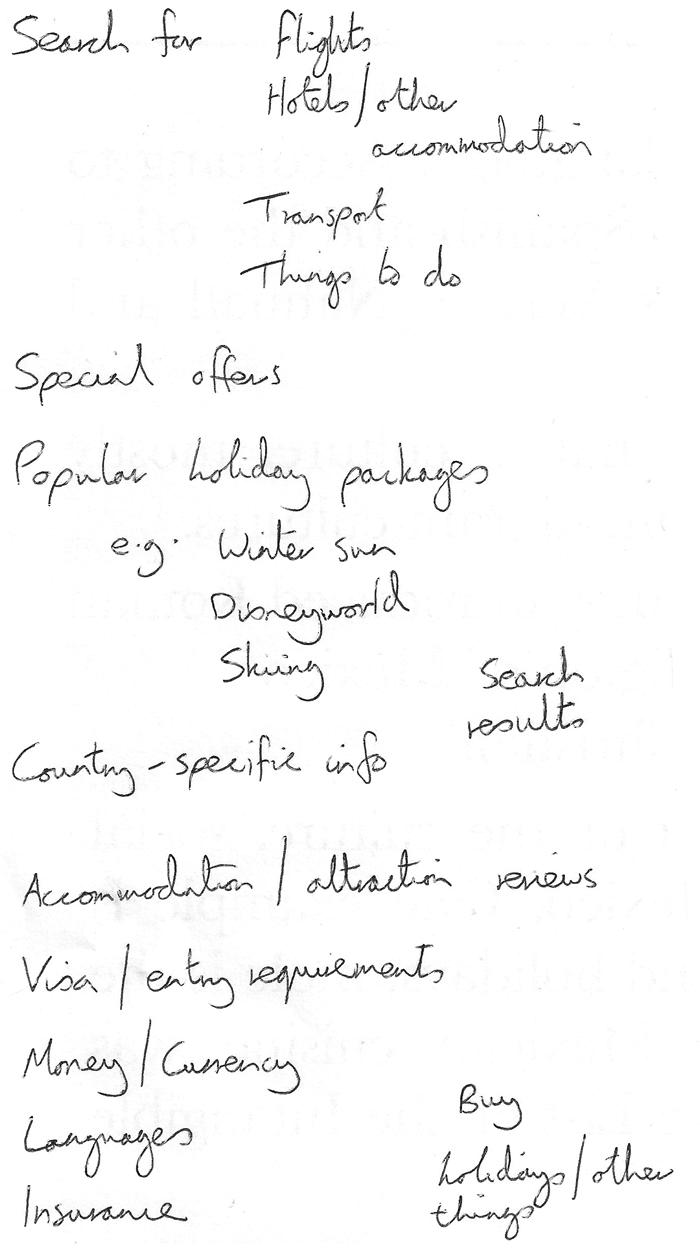 Search for Flights
Hotels/other
accommodation
Transport
Things to do
Special offers
Popular holiday packages
e.g. Winter sun
Disneyworld
Skiing
Search
results
Country-specific info
Accommodation / attraction reviews
Visa / entry requirements
Money / Currency
Languages
Insurance
Buy
holidays/other
things